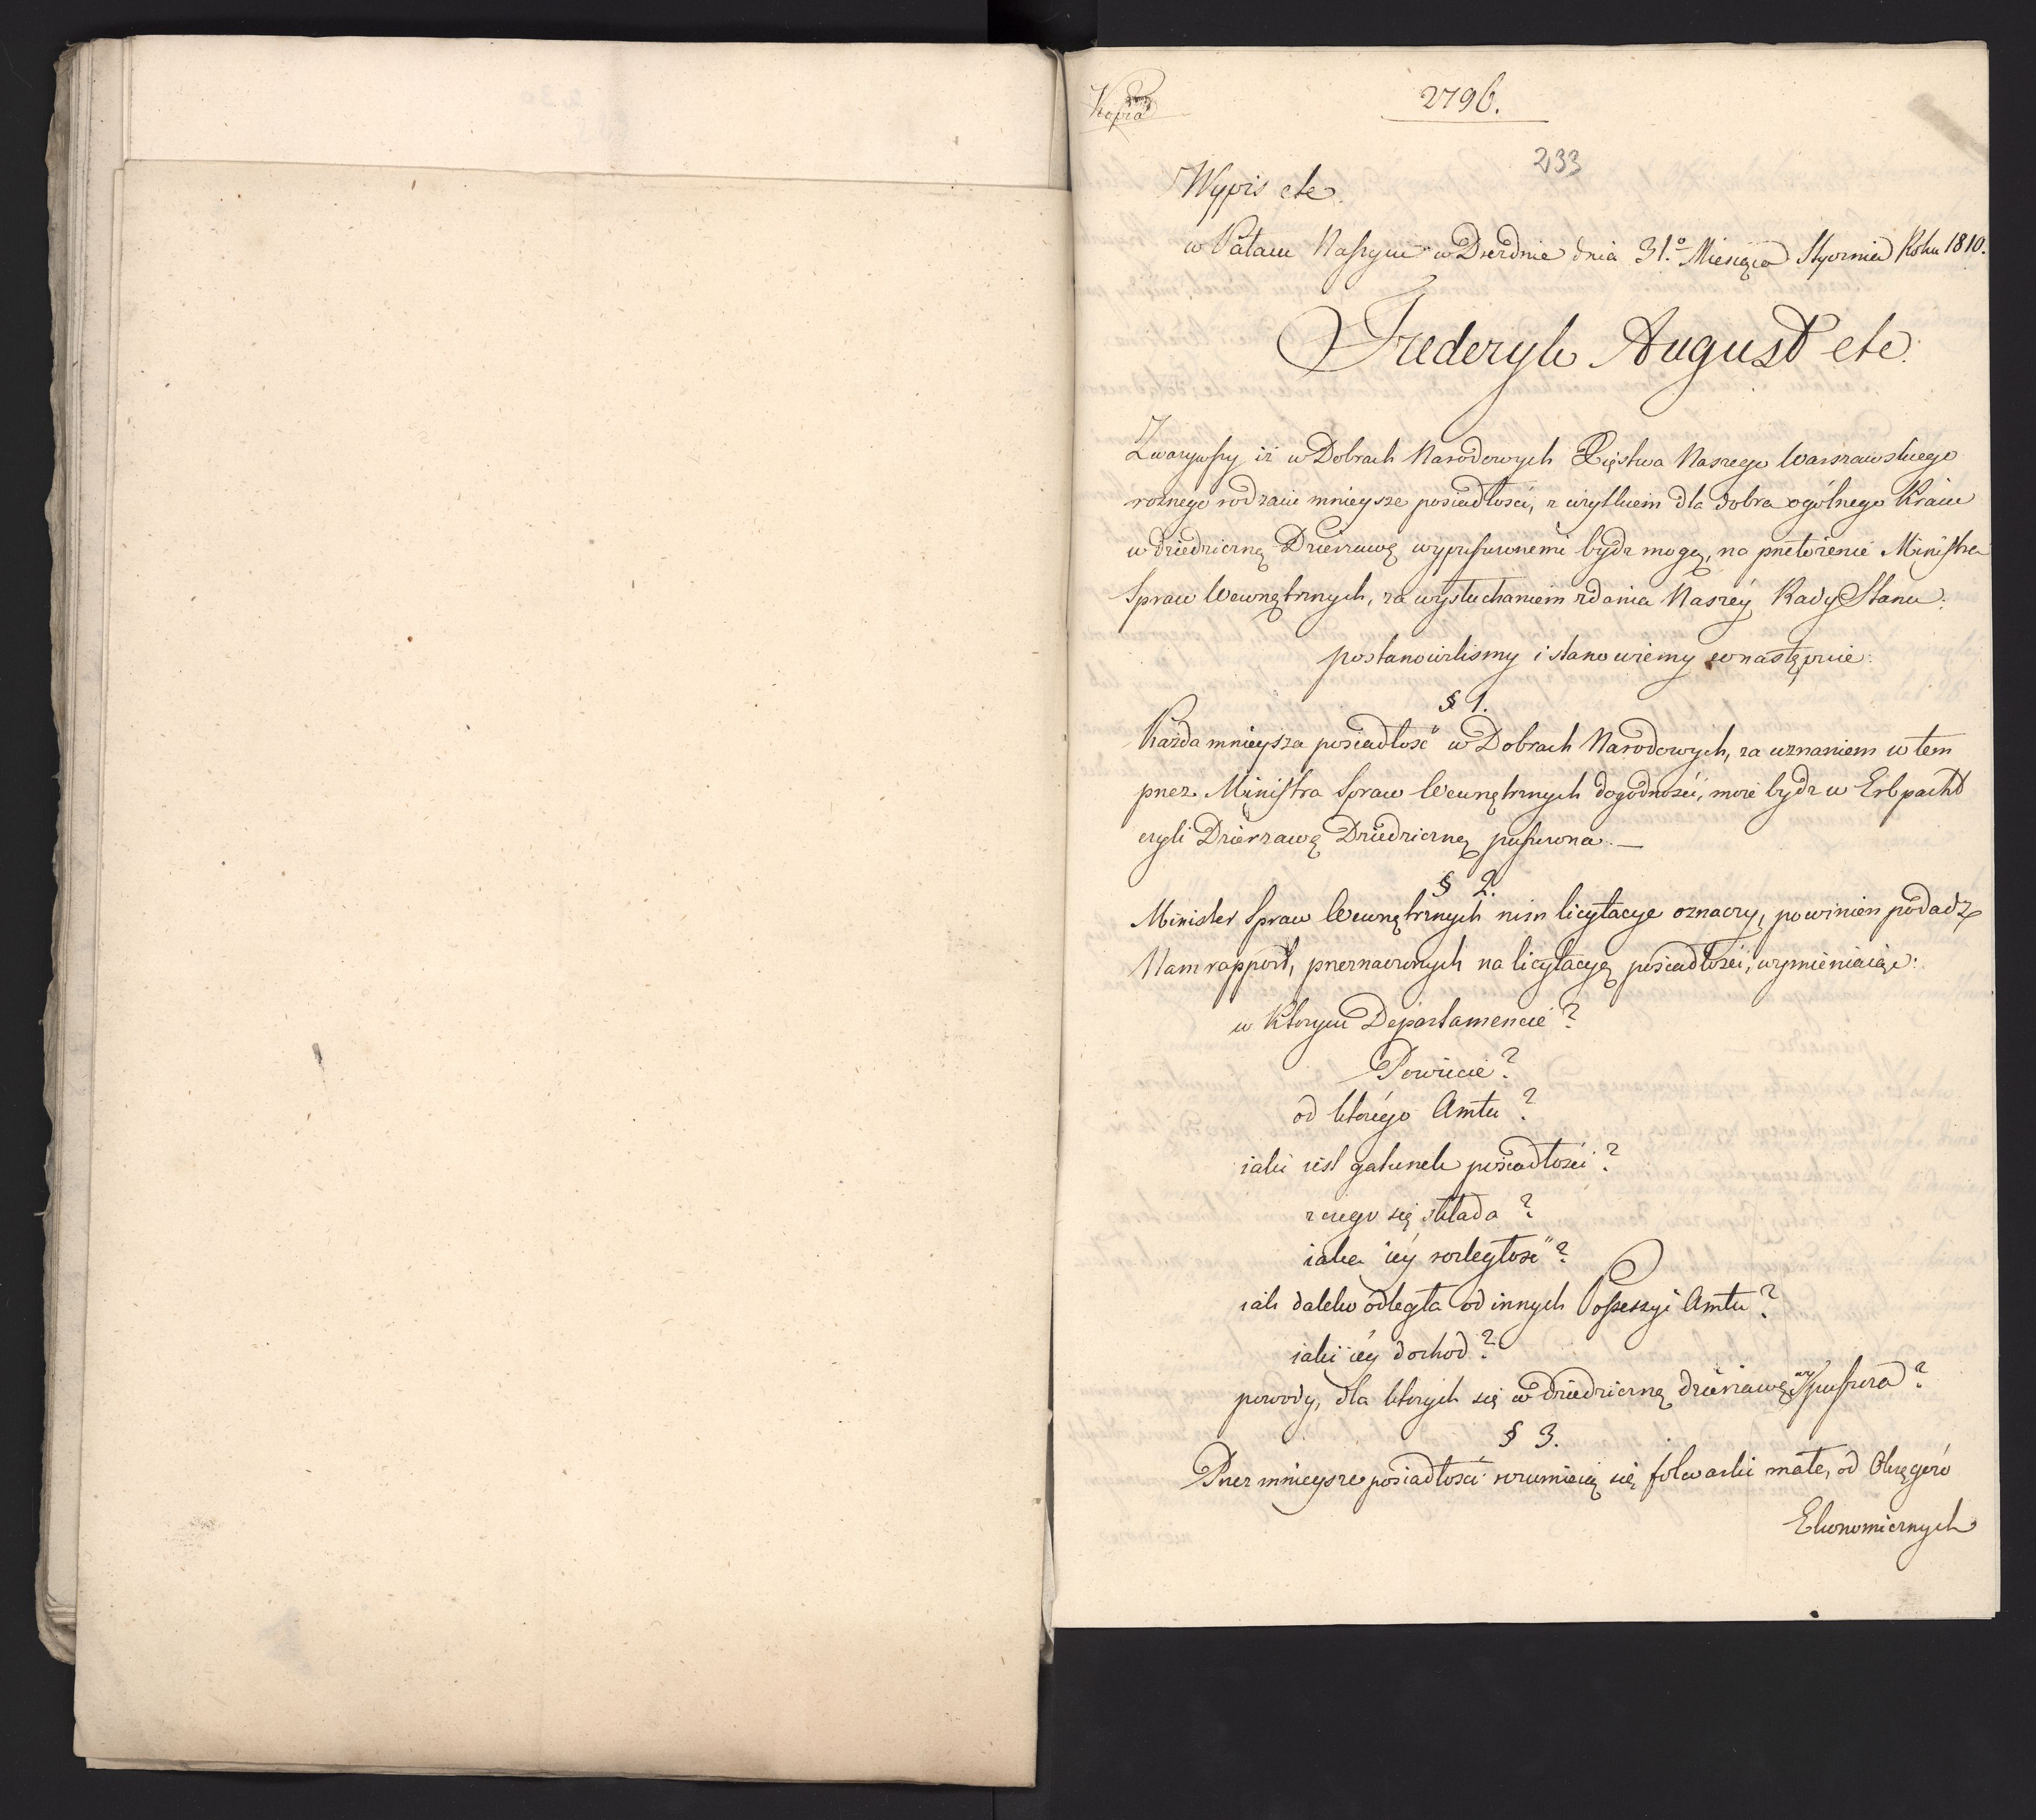 Kopia
2796.
233
Wypis etc.
w Pałacu Naszym w Dreźnie dnia 31.° Miesiąca Stycznia Roku 1810.
Frederyk August etc.
Zwarzywszy iż w Dobrach Narodowych Xięstwa Naszego Warszawskiego
rożnego rodzaiu mnieysze posiadłości, z użytkiem dla dobra ogólnego Kraiu
w dziedziczną Dzierzawę wypuszczonemi bydz mogą, na przełożenie Ministra
Spraw Wewnętrznych, za wysłuchaniem zdania Naszéy Rady Stanu:
postanowilismy i stanowiemy co następuie:
§ 1.
Każda mnieysza posiadłość w Dobrach Narodowych, za uznaniem w tem
przez Ministra Spraw Wewnętrznych dogodności, może bydz w Erbpacht
czyli Dzierzawę Dziedziczną puszczona. —
§ 2.
Minister Spraw Wewnętrznych nim licytacye oznaczy, powinien podadz
Nam rapport, przeznaczonych na licytacyą posiadłości, wymieniaiąc:
w Ktorym Departamencie?
Powiecie?
od którégo Amtu?
iaki iest gatunek posiadłości?
z czego się składa?
iaka iéy rozległość?
iak daleko odległa od innych Possessyi Amtu?
iaki iéy dochod?
powody, dla ktorych się w dziedziczną dzierzawę wypuszcza?
§ 3.
Przez mnieysze posiadłości rozumieią się folwarki małe, od Okręgów
Ekonomicznych